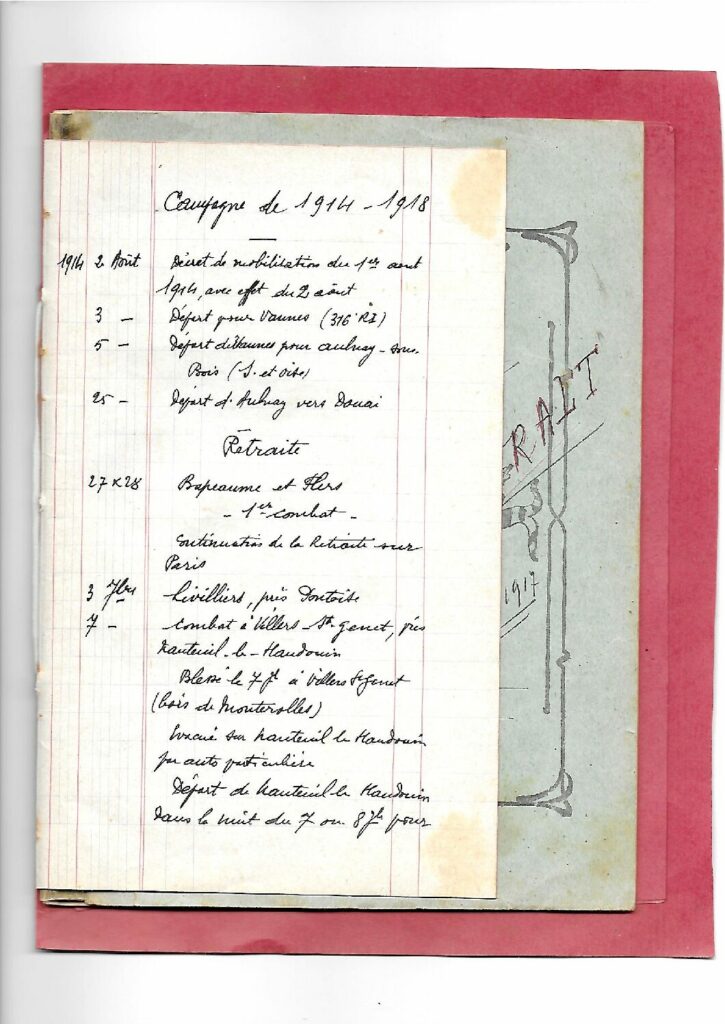 Campagne de 1914 - 1918
1914 2 Août Décret de mobilisation du 1er aout
1914, avec effet du 2 août
3 - Départ pour Vannes (316e RI)
5 - Départ de Vannes pour Aulnay-sous-
Bois (S. et Oise)
25 - Départ d'Aulnay vers Douai
Retraite
27 & 28 Bapeaume et Flers
- 1er combat -
Continuation de la Retraite sur
Paris
3 7bre Livilliers, près Pontoise
7 - Combat à Villers-St-Genet, près
Nanteuil-le-Haudouin
Blessé le 7 7bre à Villers St Genet
(bois de Montrolles)
Evacué sur Nanteuil le Haudouin
par auto particulière
Départ de Nanteuil-le Haudouin
dans la nuit du 7 au 8 7bre pour
RALT
1917